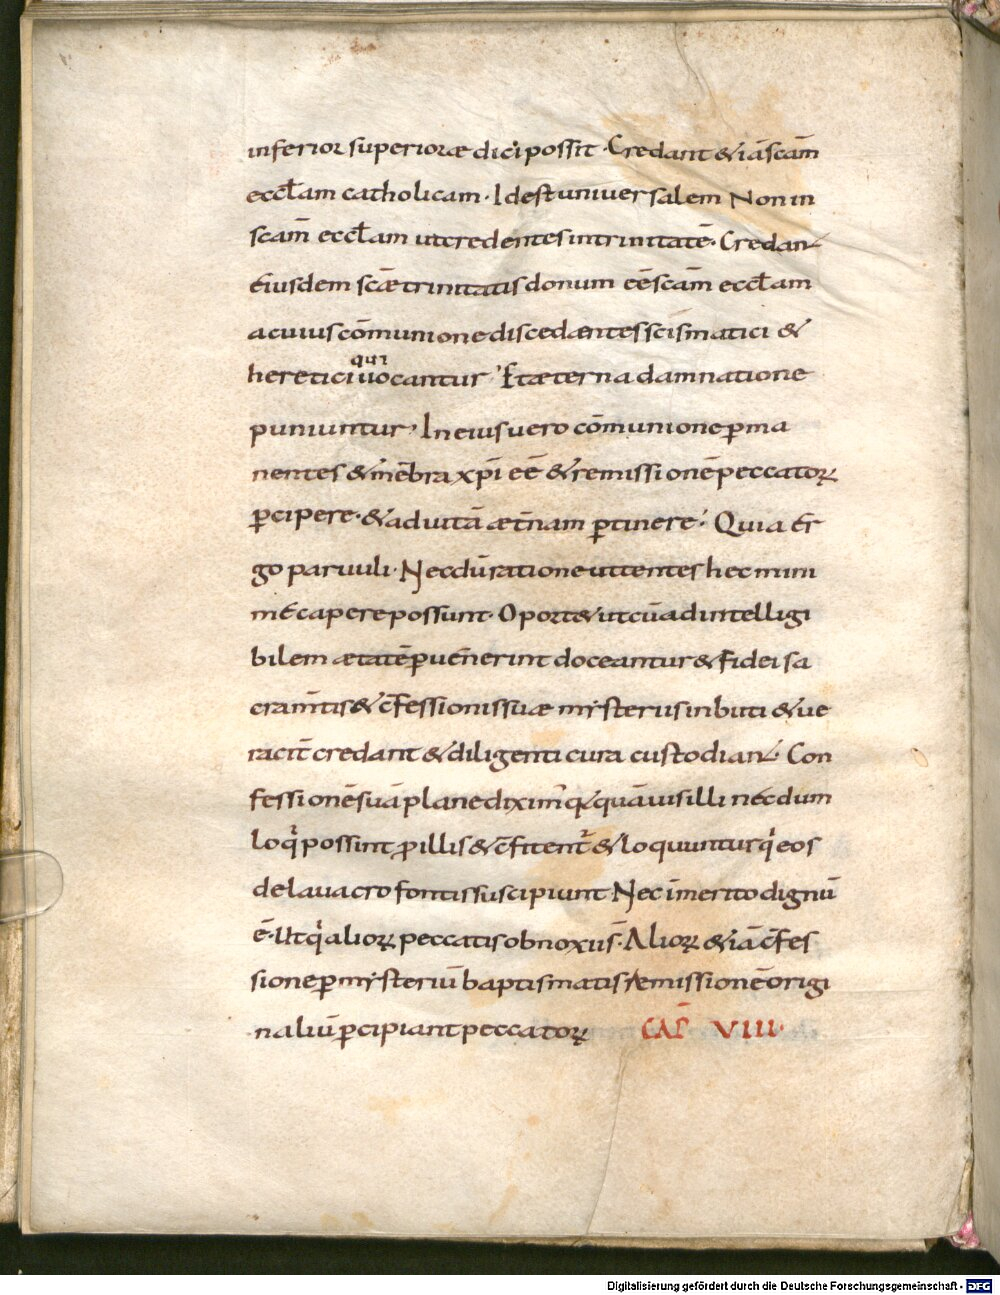 inferior superioræ dici possit · Credant & iā scam̄
eccl̄am catholicam · Id est universalem Non in
scam̄ eccl̄am ut credentes in trinitatē · Credan&
Eiusdem scǣ trinitatis donum eē scām eccl̄am
a cuius cōmunione discedentes scismatici &
heretici qui uocantur · Et æterna damnatione
puniuntur · In eius uero cōmunione ꝑma
nentes & mēbra xp̄i eē & remissionē peccatoꝝ
ꝑcipere · & ad uitā æt̄nam ꝑtinere · Quia Er
go paruuli · Necdū ratione utentes hec mini
mE capere possunt · Oport& ut cū ad intelligi
bilem ætatē ꝑuen̄erint doceantur & fidei sa
cram̄tis & c̄fessionis suæ mysteriis inbuti & ue
racit̄ credant & diligenti cura custodian& · Con
fessionē suā plane dixim᾽ q& quāuis illi necdum
loqͥ possint ꝑ illis & c̄fitent᷑ & loquuntur qͥ eos
de lauacro fontis suscipiunt · Nec īmerito dignū
ē · Ut qͥ alioꝝ peccatis obnoxii s̄ · Alioꝝ & iā c̄fes
sione ꝑ mysteriū baptismatis remissionē origi
naliū ꝑcipiant peccatoꝝ CAP̄ VIII ·
Digitalisierung gefördert durch die Deutsche Forschungsgemeinschaft - DFG